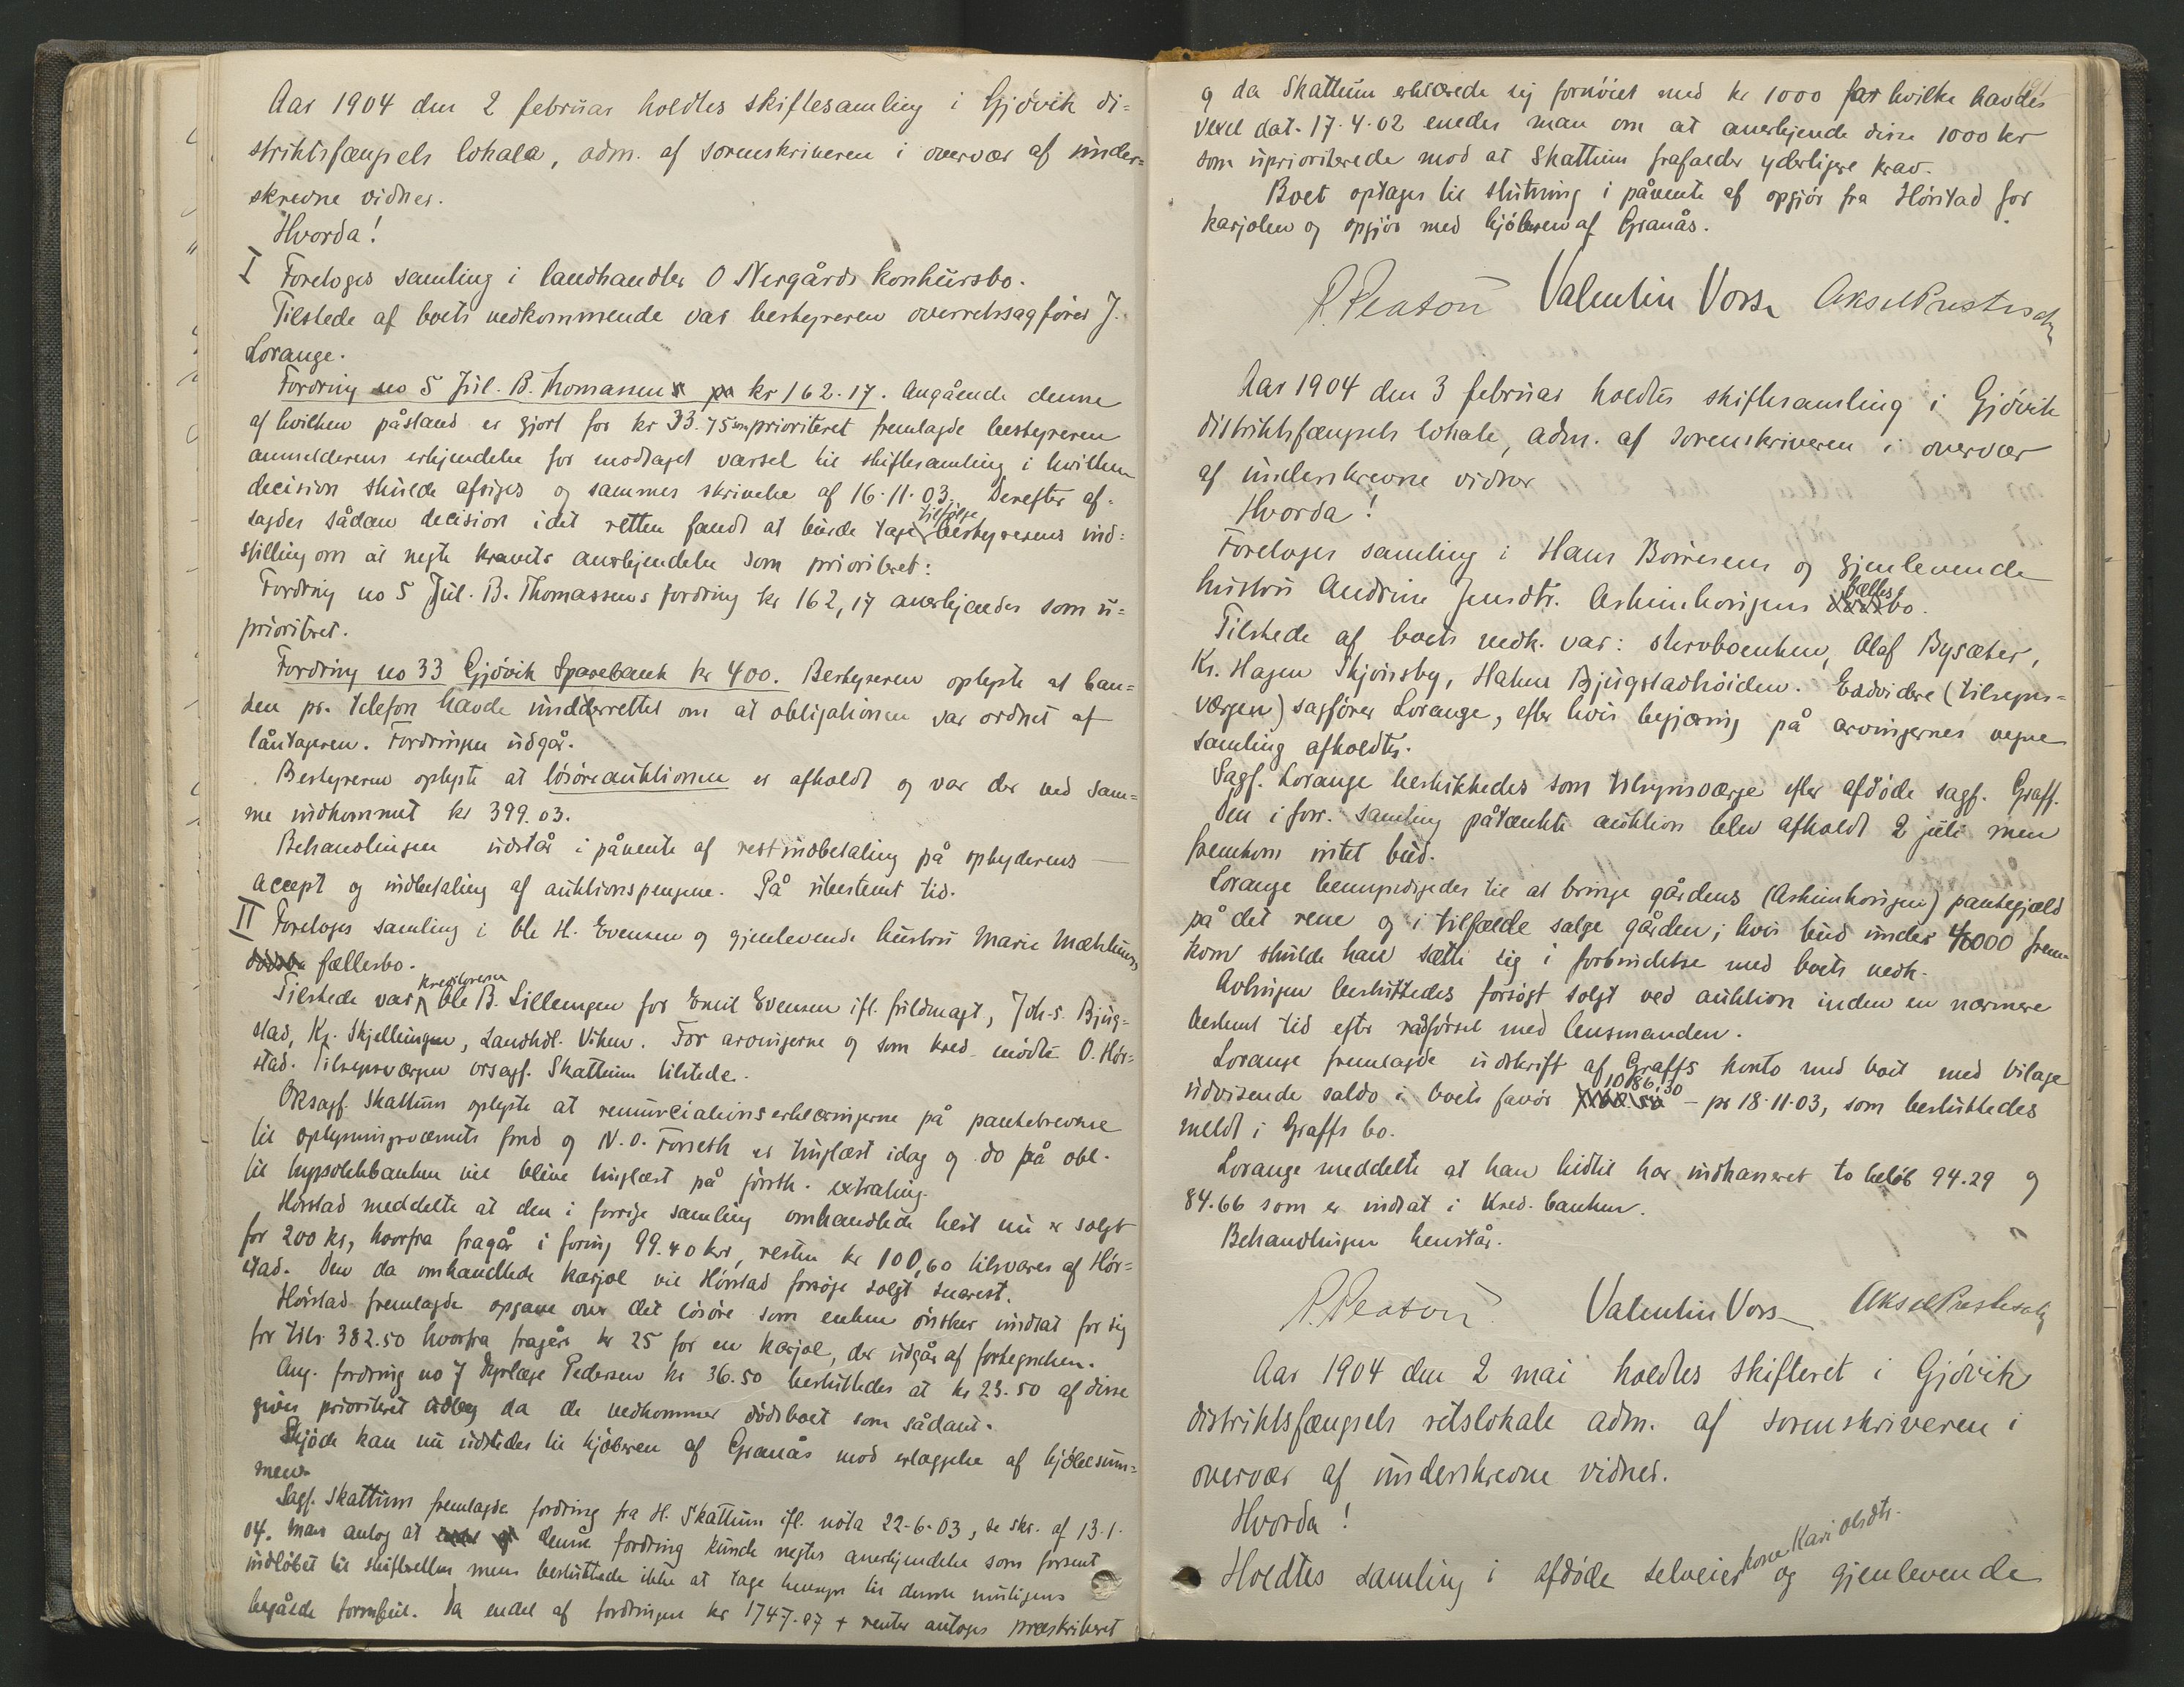 Aar 1904 den 2 februar holdtes skiftesamling i Gjøvik di-
striktsfængsels lokale, adm. af sorenskriveren i overvær af under-
skrevne vidner.
Hvorda!
I Foretoges samling i landhandler O Nergårds konkursbo.
Tilstede af boets vedkommende var bestyreren overretssagfører J.
Lorange.
Fordring no 5 Jul. B. Thomassens kr 162.17. Angående denne
af hvilken påstand er gjort for kr 33.75 som prioriteret fremlagde bestyreren
anmelderens erkjendelse for modtaget varsel til skiftesamling i hvilken
decision skulde afsiges og sammes skrivelse af 16.11.03. Derefter af-
sagdes sådan decision idet retten fandt at burde tage tilfølge bestyrerens ind-
stilling om at negte kravets anerkjendelse som prioriteret:
Fordring no 5 Jul. B. Thomassens fordring kr 162,17 anerkjendes som u-
prioriteret.
Fordring no 33 Gjøvik Sparebank kr 400. Bestyreren oplyste at ban-
ken pr. telefon havde underrettet om at obligationen var ordnet af
låntageren. Fordringen udgår.
Bestyreren oplyste at løsøreauktionen er afholdt og var der ved sam-
me indkommet kr 399.03.
Behandlingen udstår i påvente af restindbetaling på opbyderens
accept og indbetaling af auktionspengene. På ubestemt tid.
II Foretoges samling i Ole H. Evensen og gjenlevende hustru Marie Mæhlums
dødsbo fællesbo.
Tilstede var kreditorerne Ole B. Lillengen for Emil Evensen ifl. fuldmagt, Joh. S. Bjug-
stad, Kr. Skjellungen, Landhdl. Viken. For arvingerne og som kred. mødte O. Hør-
stad. Tilsynsværgen orsagf. Skattum tilstede.
Orsagf. Skattum oplyste at renunciationserklæringerne på pantebrevene
til oplysningsvæsenets fond og N. O. Forseth er tinglæst idag og do på obl.
til hypothekbanken vil blive tinglæst på førstk. extrating.
Hørstad meddelte at den i forrige samling omhandlede hest nu er solgt
for 200 kr, hvorfra fragår i foring 99.40 kr, resten kr 100,60 tilsvares af Hør-
stad. Den da omhandlede karjol vil Hørstad forsøge solgt snarest.
Hørstad fremlagde opgave over det løsøre som enken ønsker indsat for sig
for tils. 382.50 hvorfra fragår kr 25 for en karjol, der udgår af fortegnelsen.
Ang. fordring no 7 Dyrlæge Pedersen kr 36.50 besluttedes at kr 23.50 af disse
gives prioriteret udlæg da de vedkommer dødsboet som sådant.
Skjøde kan nu udstedes til kjøberen af Granås mod erlæggelse af kjøbesum-
men.
Sagf. Skattum fremlagde fordring fra H. Skattum ifl. nota 22-6-03, se skr. af 13.1.
04. Man antog at denne fordring kunde negtes anerkjendelse som forsent
indløbet til skifteretten men besluttede ikke at tage hensyn til denne muligens
begåede formfeil. Da endel af fordringen kr 1747.97 + renter antoges præskriberet
og da Skattum erklærede sig fornøiet med kr 1000 for hvilke havdes
vexel dat. 17.4.02 enedes man om at anerkjende disse 1000 kr
som uprioriterede mod at Skattum frafalder yderligere krav.
Boet optages til slutning i påvente af opgjør fra Hørstad for
karjolen og opgjør med kjøberen af Granås.
Valentin Vorse
Aar 1904 den 3 februar holdtes skiftesamling i Gjøvik
distriktsfængsels lokale, adm. af sorenskriveren i overvær
af underskrevne vidner
Hvorda!
Foretoges samling i Hans Børresens og gjenlevende
hustru Andrine Jensdtr. Askimhovigens fællesbo.
Tilstede af boets vedk. var: stervboenken, Olaf Bysæter,
Kr. Hagen Skjønsby, Halvor Bjugstadhøiden. Endvidere (tilsyns-
værgen) sagfører Lorange, efter hvis begjæring på arvingernes vegne
samling afholdtes.
Sagf. Lorange beskikkedes som tilsynsværge efter afdøde sagf. Graff.
Den i forr. samling påtænkte auktion blev afholdt 2 juli men
fremkom intet bud.
Lorange bemyndigedes til at bringe gårdens (Askimhovigen) pantegjæld
på det rene og i tilfælde sælge gården; hvis bud under 4000 frem-
kom skulde han sætte sig i forbindelse med boets vedk.
Avlingen besluttedes forsøgt solgt ved auktion inden en nærmere
bestemt tid efter rådførsel med lensmanden.
Lorange fremlagde udskrift af Graffs konto med boet med bilage
udvisende saldo i boets favør 1086.30 – pr 18.11.03, som besluttedes
meldt i Graffs bo.
Lorange meddelte at han hidtil har indkasseret to beløb 94.29 og
84.66 som er indsat i Kred. banken.
Behandlingen henstår.
Valentin Vorse
Aar 1904 den 2 mai holdtes skifteret i Gjøvik
distriktsfængsels retslokale adm. af sorenskriveren i
overvær af underskrevne vidner.
Hvorda!
Holdtes samling i afdøde selveier kone Kari Olsdtr. og gjenlevende